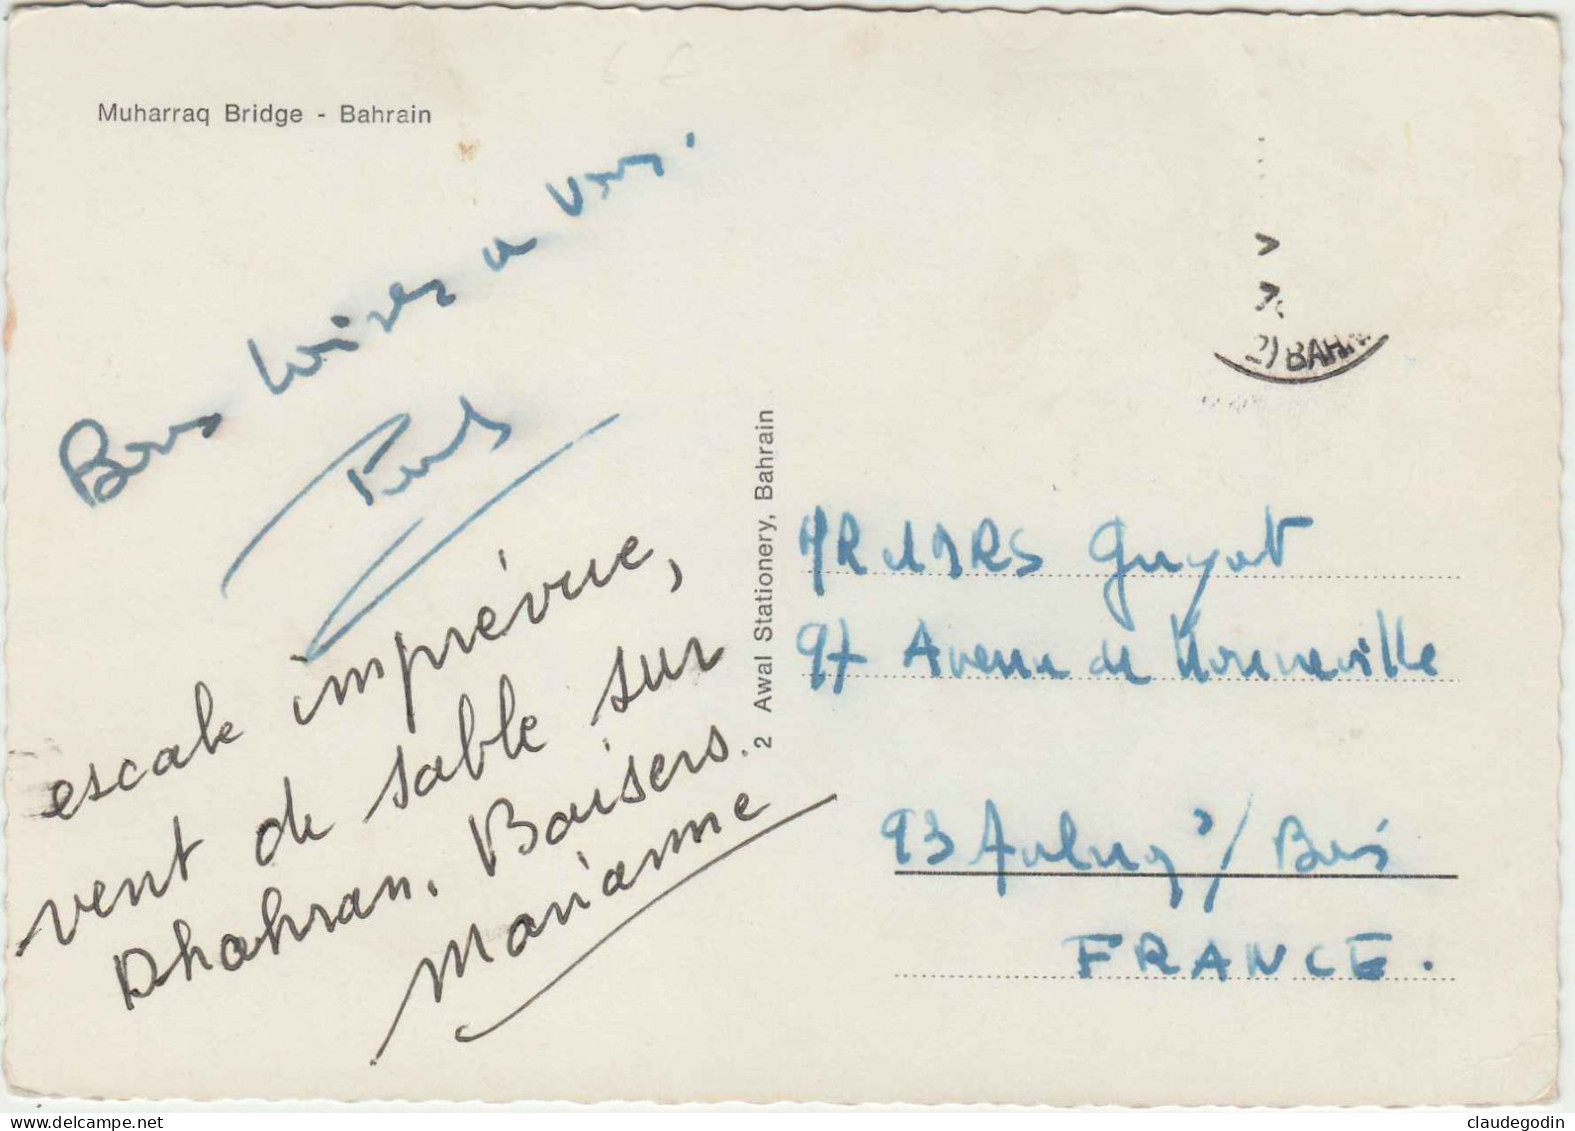 Muharraq Bridge - Bahrain
Bons baisers a vous.
escale imprévue,
vent de sable sur
Dhahran. Baisers.
Marianne
2 Awal Stationery, Bahrain
2) BAH
MR & MRS Guyot
97 Avenue de Nonneville
93 Aulnay s/ Bois
FRANCE.
claudegodin